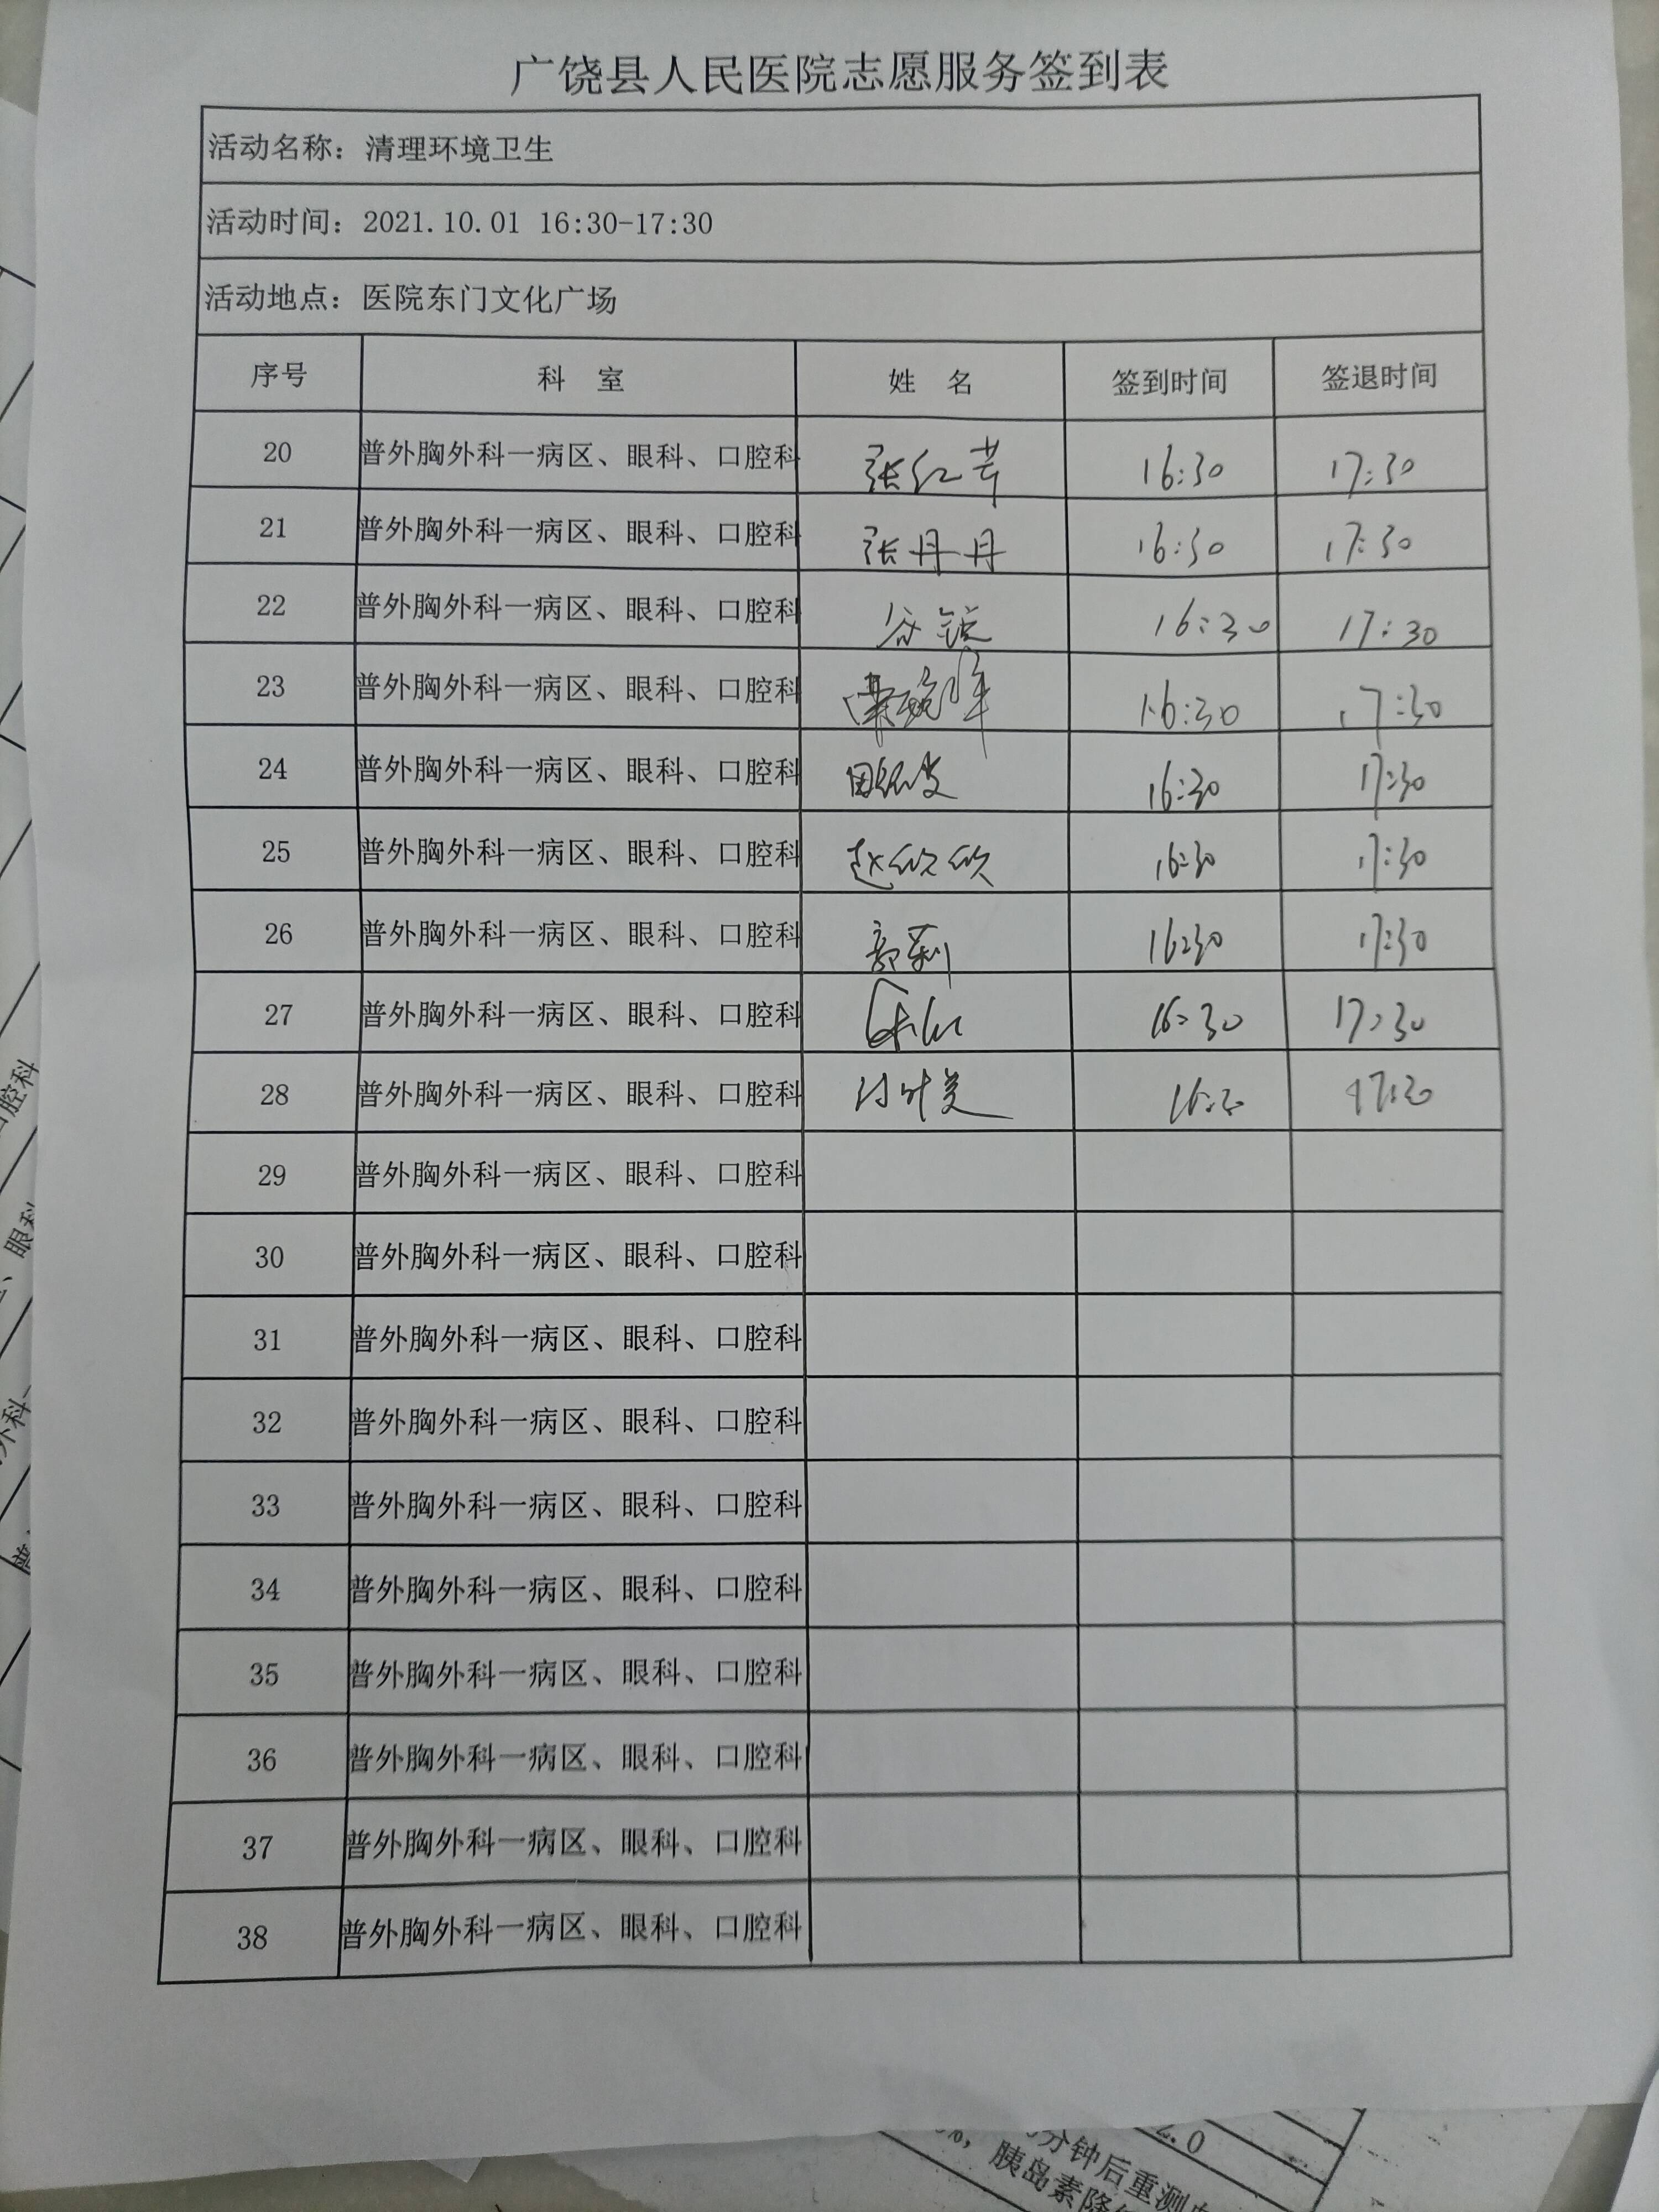 广饶县人民医院志愿服务签到表
活动名称：清理环境卫生
活动时间：2021.10.01 16:30-17:30
活动地点：医院东门文化广场
序号 科 室 姓 名 签到时间 签退时间
20 普外胸外科一病区、眼科、口腔科 张红芹 16:30 17:30
21 普外胸外科一病区、眼科、口腔科 张丹丹 16:30 17:30
22 普外胸外科一病区、眼科、口腔科 16:30 17:30
23 普外胸外科一病区、眼科、口腔科 16:30 17:30
24 普外胸外科一病区、眼科、口腔科 16:30 17:30
25 普外胸外科一病区、眼科、口腔科 赵欣欣 16:30 17:30
26 普外胸外科一病区、眼科、口腔科 郭莉 16:30 17:30
27 普外胸外科一病区、眼科、口腔科 16:30 17:30
28 普外胸外科一病区、眼科、口腔科
29 普外胸外科一病区、眼科、口腔科
30 普外胸外科一病区、眼科、口腔科
31 普外胸外科一病区、眼科、口腔科
32 普外胸外科一病区、眼科、口腔科
33 普外胸外科一病区、眼科、口腔科
34 普外胸外科一病区、眼科、口腔科
35 普外胸外科一病区、眼科、口腔科
36 普外胸外科一病区、眼科、口腔科
37 普外胸外科一病区、眼科、口腔科
38 普外胸外科一病区、眼科、口腔科
口腔科
、眼科
外科一
2.0
分钟后重测
胰岛素降